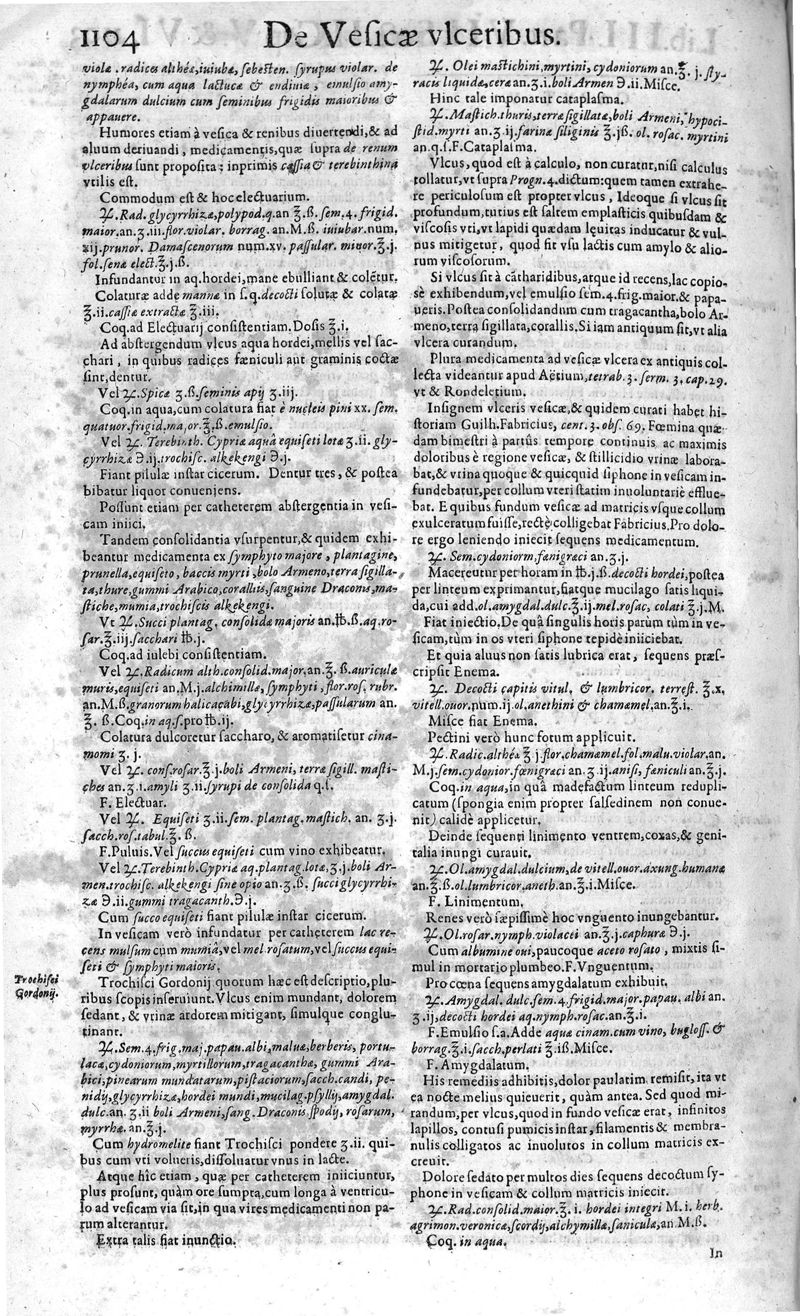 1104 De Veſicæ vlceribus.
violæ. radices althéæ, iuiubæ, ſebeſten. ſyrupus violar. de
nymphéa, cum aqua lactucæ & endiuiæ, emulſio amy-
gdalarum dulcium cum ſeminibus frigidis maioribus &
papauere.
Humores etiam à veſica & renibus diuertendi, & ad
aluum deriuandi, medicamentis, quæ ſupra de renum
vlceribus ſunt propoſita; inprimis caſſia & terebinthina
vtilis eſt.
Commodum eſt & hoc electuarium.
♃. Rad. glycyrrhizæ, polypod. q. an ℥. ß. ſem. 4. frigid.
maior. an. ʒ. iii. flor. violar. borrag. an. M. ß. iuiubar. num.
xij. prunor. Damaſcenorum num. xv. paſſular. minor. ℥. j.
fol. ſenæ elect. ℥. j. ß.
Infundantur in aq. hordei, mane ebulliant & colétur.
Colaturæ adde mannæ in ſ. q. decocti ſolutæ & colatæ
℥. ii. caſſiæ extractæ ℥. iii.
Coq. ad Electuarij conſiſtentiam. Doſis ℥. i.
Ad abſtergendum vlcus aqua hordei, mellis vel ſac-
chari, in quibus radices fæniculi aut graminis coctæ
ſint, dentur.
Vel ♃. Spicæ ʒ. ß. ſeminis apij ʒ. iij.
Coq. in aqua, cum colatura fiat è nucleis pini xx. ſem.
quatuor. frigid. maior. ℥. ß. emulſio.
Vel ♃. Terebinth. Cypriæ aquâ equiſeti lotæ ʒ. ii. gly-
cyrrhizæ ℈. ij. trochiſc. alkekengi ℈. j.
Fiant pilulæ inſtar cicerum. Dentur tres, & poſtea
bibatur liquor conuenjens.
Poſſunt etiam per catheterem abſtergentia in veſi-
cam iniici.
Tandem conſolidantia vſurpentur, & quidem exhi-
beantur medicamenta ex ſymphyto majore, plantagine,
prunella, equiſeto, baccis myrti, bolo Armeno, terra ſigilla-
ta, thure, gummi Arabico, corallis, ſanguine Draconis, ma-
ſtiche, mumia, trochiſcis alkekengi.
Vt ♃. Succi plantag. conſolidæ majoris an. ℔. ß. aq. ro-
ſar. ℥. iij. ſacchari ℔. j.
Coq. ad iulebi conſiſtentiam.
Vel ♃. Radicum alth. conſolid. major. an. ℥. ß. auriculæ
muris, equiſeti an. M. j. alchimillæ, ſymphyti, flor. roſ. rubr.
an. M. ß. granorum halicacabi, glycyrrhizæ, paſſularum an.
℥. ß. Coq. in aq. ſ. pro ℔. ij.
Colatura dulcoretur ſaccharo, & aromatiſetur cina-
momi ʒ. j.
Vel ♃. conſ. roſar. ℥. j. boli Armeni, terræ ſigill. maſti-
ches an. ʒ. i. amyli ʒ. ii. ſyrupi de conſolida q. ſ.
F. Electuar.
Vel ♃. Equiſeti ʒ. ii. ſem. plantag. maſtich. an. ʒ. j.
ſacch. roſ. tabul. ℥. ß.
F. Puluis. Vel ſuccus equiſeti cum vino exhibeatur.
Vel ♃. Terebinth. Cypriæ aq. plantag. lotæ, ʒ. j. boli Ar-
men. trochiſc. alkekengi ſine opio an. ʒ. ß. ſucci glycyrrhi-
zæ ℈. ii. gummi tragacanth. ℈. j.
Cum ſucco equiſeti fiant pilulæ inſtar cicerum.
In veſicam verò infundatur per catheterem lac re-
cens mulſum cum mumiâ, vel mel roſatum, vel ſuccus equi-
ſeti & ſymphyti maioris.
Trochiſci
Gordonij.
Trochiſci Gordonij quorum hæc eſt deſcriptio, plu-
ribus ſcopis inſeruiunt. Vlcus enim mundant, dolorem
ſedant, & vrinæ ardorem mitigant, ſimulque conglu-
tinant.
♃. Sem. 4. frig. maj. papau. albi, maluæ, berberis, portu-
lacæ, cydoniorum, myrtillorum, tragacanthæ, gummi Ara-
bici, pinearum mundatarum, piſtaciorum, ſacch. candi, pe-
nidij, glycyrrhizæ, hordei mundi, mucilag. pſyllij, amygdal.
dulc. an. ʒ. ii boli Armeni, ſang. Draconis, ſpodij, roſarum,
myrrhæ. an. ℥. j.
Cum hydromelite fiant Trochiſci pondere ʒ. ii. qui-
bus cum vti volueris, diſſoluatur vnus in lacte.
Atque hîc etiam, quæ per catheterem iniiciuntur,
plus proſunt, quàm ore ſumpta, cum longa à ventricu-
lo ad veſicam via ſit, in qua vires medicamenti non pa-
rum alterantur.
Extra talis fiat inunctio.
♃. Olei maſtichini, myrtini, cydoniorum an. ℥. j. ſty-
racis liquidæ, ceræ an. ʒ. i. boli Armen ℈. ii. Miſce.
Hinc tale imponatur cataplaſma.
♃. Maſtich. thuris, terræ ſigillatæ, boli Armeni, hypoci-
ſtid. myrti an. ʒ. ij. farinæ ſiliginis ℥. jß. ol. roſac. myrtini
an. q. ſ. F. Cataplaſma.
Vlcus, quod eſt à calculo, non curatur, niſi calculus
tollatur, vt ſupra Progn. 4. dictum: quem tamen extrahe-
re periculoſum eſt propter vlcus, Ideoque ſi vlcus ſit
profundum, tutius eſt ſaltem emplaſticis quibuſdam &
viſcoſis vti, vt lapidi quædam leuitas inducatur & vul-
nus mitigetur, quod fit vſu lactis cum amylo & alio-
rum viſcoſorum.
Si vlcus ſit à cãtharidibus, atque id recens, lac copio-
sè exhibendum, vel emulſio ſem. 4. frig. maior. & papa-
ueris. Poſtea conſolidandum cum tragacantha, bolo Ar-
meno, terra ſigillata, corallis. Si iam antiquum ſit, vt alia
vlcera curandum.
Plura medicamenta ad veſicæ vlcera ex antiquis col-
lecta videantur apud Aëtium, tetrab. 3. ſerm. 3. cap. 29.
vt & Rondeletium.
Inſignem vlceris veſicæ, & quidem curati habet hi-
ſtoriam Guilh. Fabricius, cent. 3. obſ. 69. Fœmina quæ-
dam bimeſtri à partûs tempore continuis ac maximis
doloribus è regione veſicæ, & ſtillicidio vrinæ labora-
bat, & vrina quoque & quicquid ſiphone in veſicam in-
fundebatur, per collum vteri ſtatim inuoluntariè efflue-
bat. E quibus fundum veſicæ ad matricis vſque collum
exulceratum fuiſſe, rectè colligebat Fabricius. Pro dolo-
re ergo leniendo iniecit ſequens medicamentum.
♃. Sem. cydoniorm. fænigræci an. ʒ. j.
Macereutur per horam in ℔. j. ß. decocti hordei, poſtea
per linteum exprimantur, fiatque mucilago ſatis liqui-
da, cui add. ol. amygdal. dulc. ℥. ij. mel. roſac. colati ℥. j. M.
Fiat iniectio. De quâ ſingulis horis parùm tùm in ve-
ſicam, tùm in os vteri ſiphone tepidè iniiciebat.
Et quia aluus non ſatis lubrica erat, ſequens præſ-
cripſit Enema.
♃. Decocti capitis vitul. & lumbricor. terreſt. ℥. x.
vitell. ouor. num. ij. ol. anethini & chamæmel. an. ℥. i.
Miſce fiat Enema.
Pectini verò hunc fotum applicuit.
♃. Radic. althéæ ℥. j. flor. chamæmel. fol. malu. violar. an.
M. j. ſem. cydonior. fœnigræci an. ʒ. ij. aniſi, fæniculi an. ʒ. j.
Coq. in aqua, in quâ madefactum linteum redupli-
catum (ſpongia enim propter ſalſedinem non conue-
nit) calidè applicetur.
Deinde ſequenti linimento ventrem, coxas, & geni-
talia inungi curauit.
♃. Ol. amygdal. dulcium, de vitell. ouor. axung. humanæ
an. ℥. ß. ol. lumbricor. aneth. an. ℥. i. Miſce.
F. Linimentum.
Renes verò ſæpiſſimè hoc vnguento inungebantur.
♃. Ol. roſar. nymph. violacei an. ℥. j. caphuræ ℈. j.
Cum albumine oui, paucoque aceto roſato, mixtis ſi-
mul in mortario plumbeo. F. Vnguentum.
Pro cœna ſequens amygdalatum exhibuit.
♃. Amygdal. dulc. ſem. 4. frigid. major. papau. albi an.
ʒ. ij, decocti hordei aq. nymph. roſac. an. ℥. i.
F. Emulſio ſ. a. Adde aquæ cinam. cum vino, bugloſſ. &
borrag. ℥. i. ſacch. perlati ℥. iß. Miſce.
F. Amygdalatum.
His remediis adhibitis, dolor paulatim remiſit, ita vt
ea nocte melius quieuerit, quàm antea. Sed quod mi-
randum, per vlcus, quod in fundo veſicæ erat, infinitos
lapillos, contuſi pumicis inſtar, filamentis & membra-
nulis colligatos ac inuolutos in collum matricis ex-
creuit.
Dolore ſedato per multos dies ſequens decoctum ſy-
phone in veſicam & collum matricis iniecit.
♃. Rad. conſolid. maior. ℥. i. hordei integri M. i. herb.
agrimon. veronicæ, ſcordij, alchymillæ, ſaniculæ, an. M. ß.
Coq. in aqua.
In